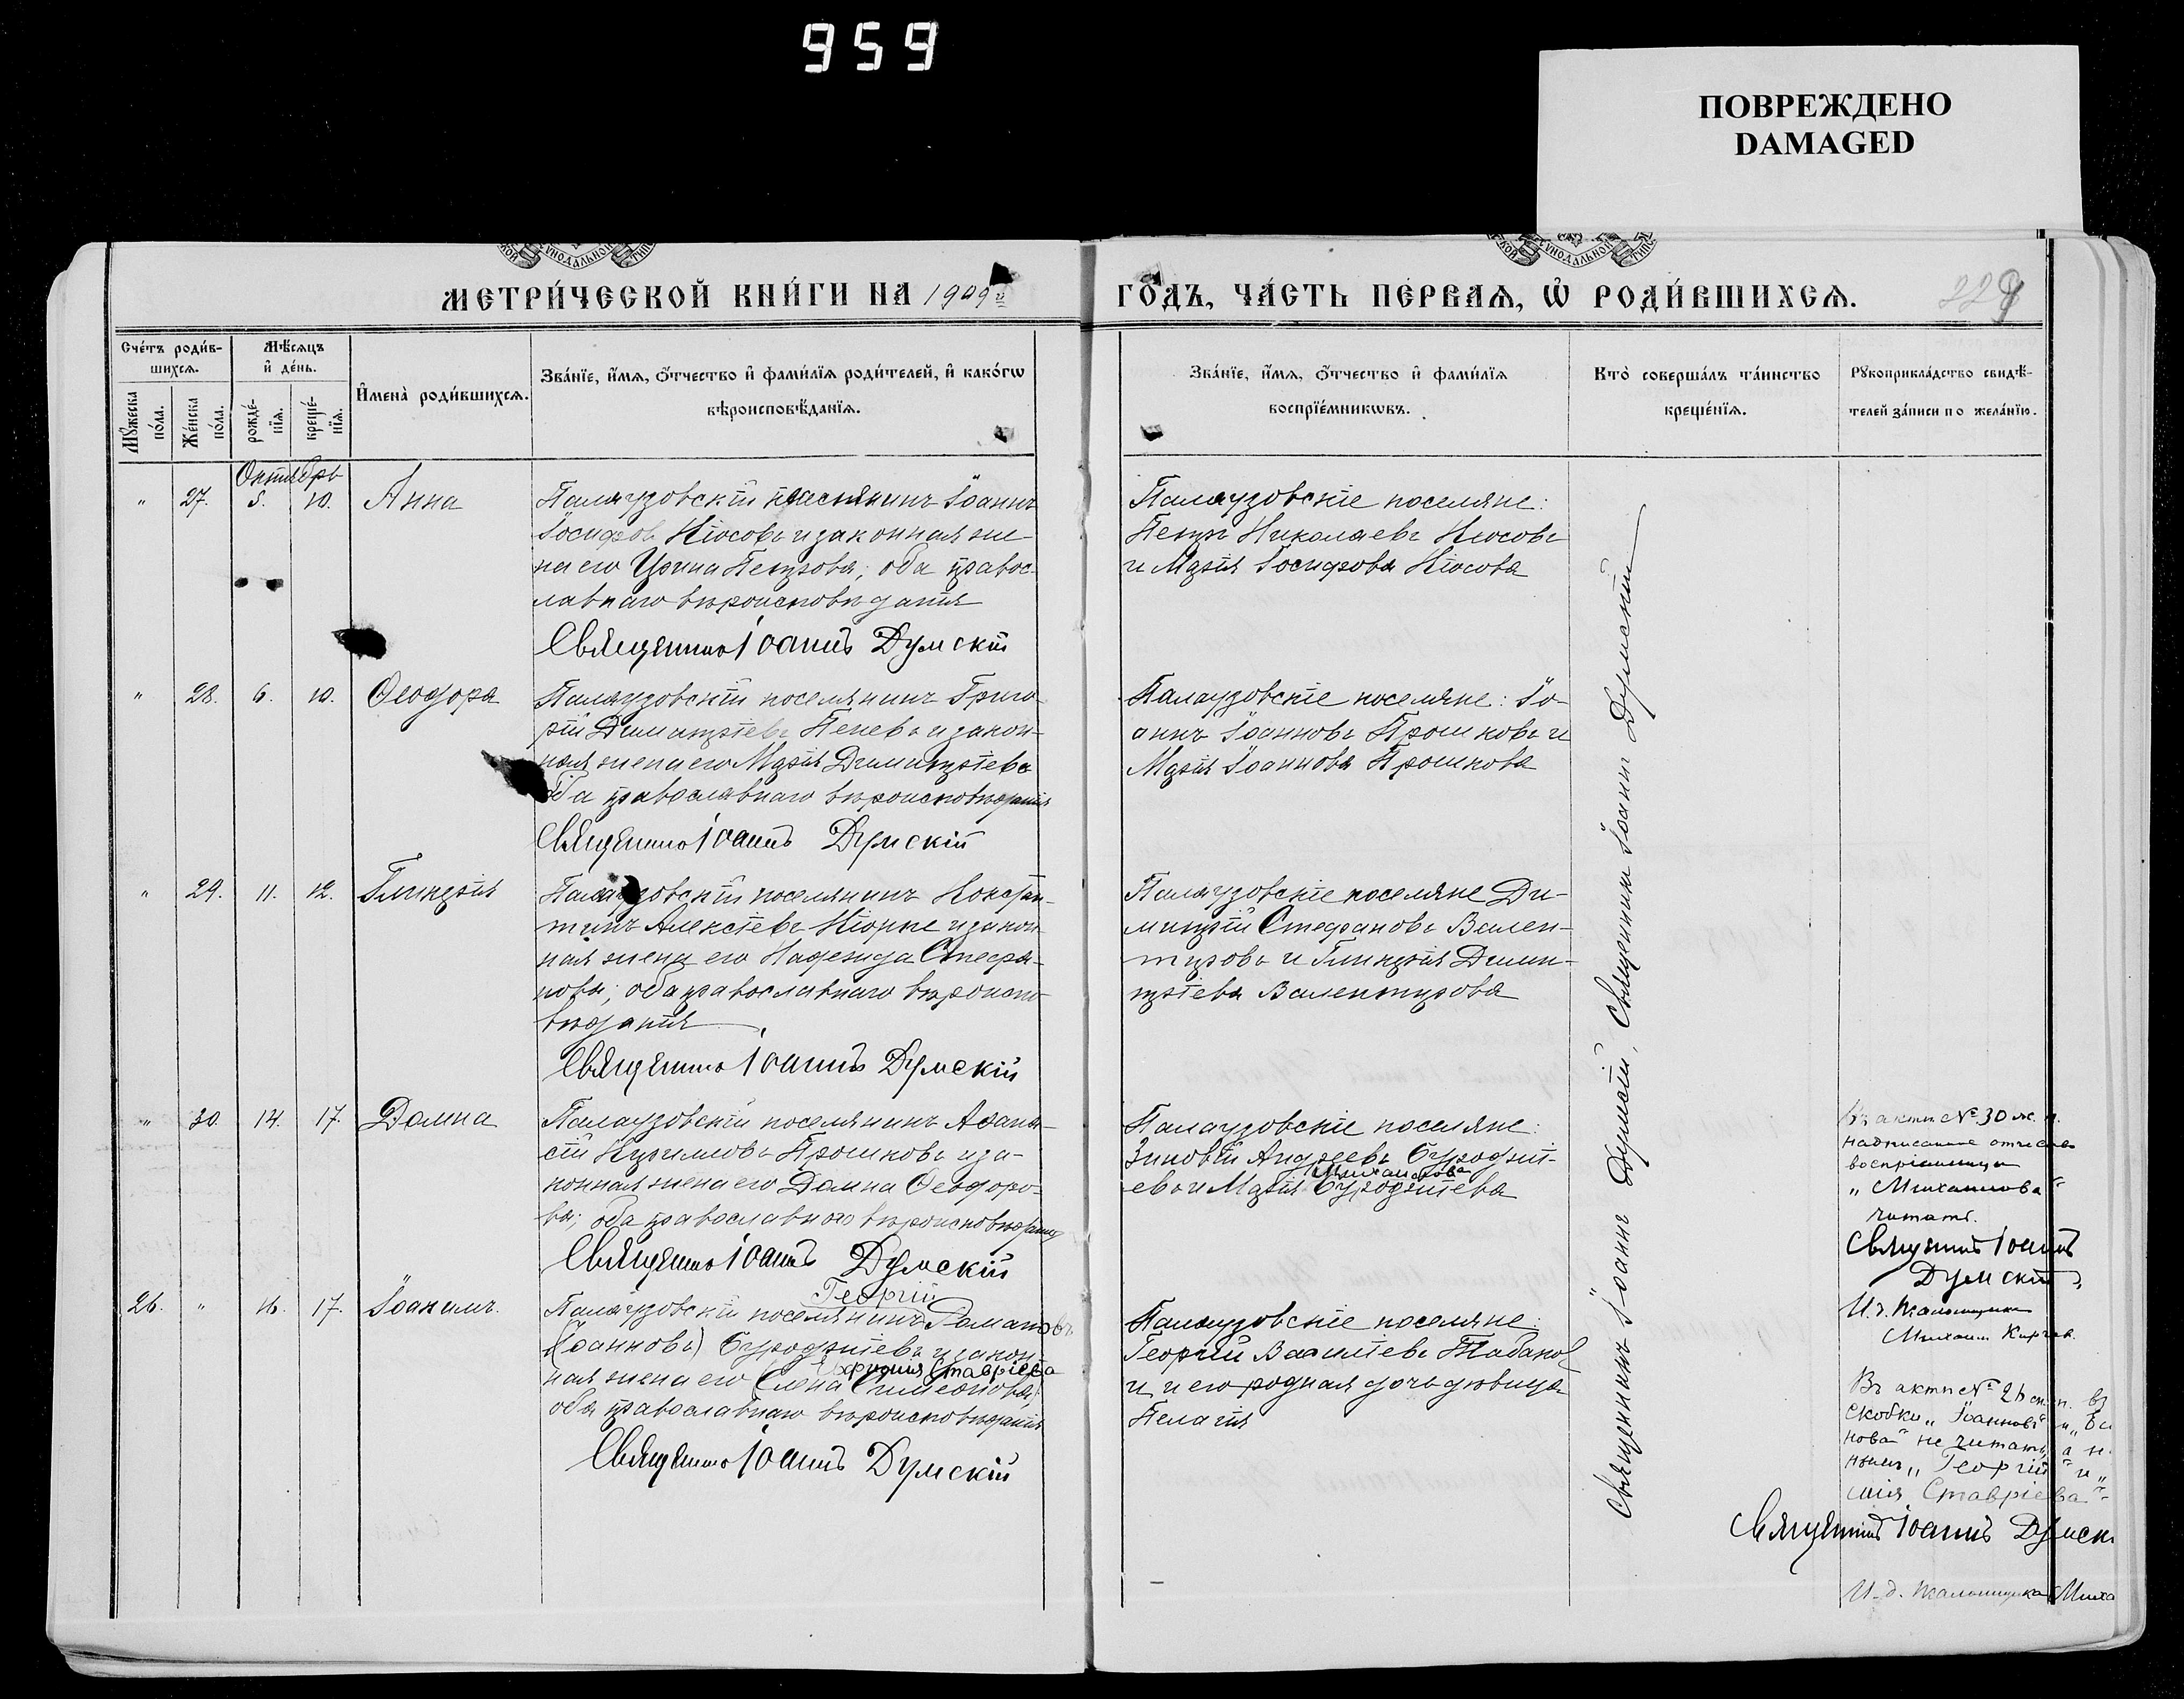 959
ПОВРЕЖДЕНО
DAMAGED
МЕТРИ́ЧЕСКОЙ КНИ́ГИ НА 1909й ГО́ДЪ, ЧА́СТЬ ПЕ́РВАѦ, Ѽ РОДИ́ВШИХСѦ.
229
Сче́тъ роди́в-
шихсѧ.
Мѣ́сѧцъ
и҆ де́нь.
Мꙋ́жеска
по́ла.
Же́нска
по́ла.
рожде́-
нїѧ.
креще́-
нїѧ.
И҆мена̀ роди́вшихсѧ.
Зва́нїе, и҆́мѧ, ѻ҆́тчество и҆ фами́лїѧ роди́телей, и҆ како́гѡ
вѣроисповѣ́данїѧ.
Зва́нїе, и҆́мѧ, ѻ҆́тчество и҆ фами́лїѧ
воспрїе́мникѡвъ.
Кто̀ соверша́лъ та́инство
креще́нїѧ.
Рꙋкоприкла́дство свидѣ́-
телей за́писи по жела́нїю.
Октябрь
" 27. 5. 10. Анна
Палаузовскій поселянинъ Іоаннъ
Іосифовъ Кіосовъ и законная же-
на его Ирина Петрова, оба правос-
лавнаго вѣроисповѣданія
Священникъ Іоаннъ Думскій
Палаузовскіе поселяне:
Петръ Николаевъ Кіосовъ
и Марія Іосифова Кіосова
" 28. 6. 10. Ѳеодора
Палаузовскій поселянинъ Григо-
рій Димитріевъ Пеневъ и закон-
ная жена его Марія Димитріева
оба православнаго вѣроисповѣданія
Священникъ Іоаннъ Думскій
Палаузовскіе поселяне: Іо-
аннъ Іоанновъ Прошковъ и
Марія Іоаннова Прошкова
" 29. 11. 12. Гликерія
Палаузовскій поселянинъ Констан-
тинъ Алексіевъ Кіорпе и закон-
ная жена его Надежда Стефа-
нова; оба православнаго вѣроиспо-
вѣданія
Священникъ Іоаннъ Думскій
Палаузовскіе поселяне Ди-
митрій Стефановъ Вален-
тировъ и Гликерія Дими-
тріева Валентирова
" 30. 14. 17. Домна
Палаузовскій поселянинъ Аѳана-
сій Кирилловъ Прошковъ и за-
конная жена его Домна Ѳеодоро-
ва; оба православнаго вѣроисповѣданія
Священникъ Іоаннъ Думскій
Палаузовскіе поселяне:
Зиновій Андреевъ Бурдужі-
Михаилова
евъ и Марія Бурдужіева
Въ актѣ №30 ж. п.
надписанное отчество
воспріемницы
„Михаилова“
читать.
Священникъ Іоаннъ
Думскій
И. д. псаломщика
Михаилъ
26. " 16. 17. Іоакимъ.
Георгій
Палаузовскій поселянинъ Романовъ
(Іоанновъ) Бурдужіевъ и закон-
Ставріева
ная жена его (Елена Симеонова)
оба православнаго вѣроисповѣданія
Священникъ Іоаннъ Думскій
Палаузовскіе поселяне:
Георгій Василіевъ Табаков
и и его родная дочь дѣвица
Пелагія
Въ актѣ № 26 м. п. въ
скобки „Іоанновъ“ и
нова“ не читать, а
„Георгій“ и „
Ставріева“
Священникъ Іоаннъ Думск
И. д. псаломщика Миха
Священникъ Іоаннъ Думскій, Священникъ Іоаннъ Думскій